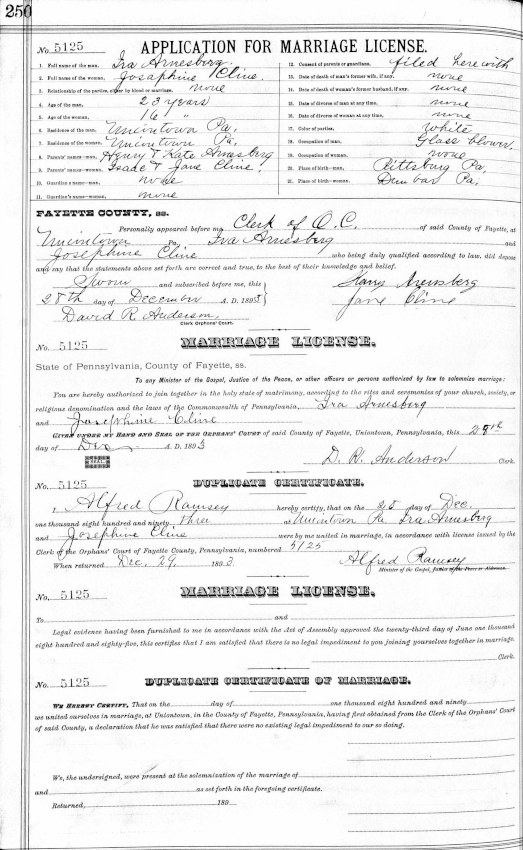 250
No. 5125 APPLICATION FOR MARRIAGE LICENSE.
1 Full name of the man, Ira Arnesberg
2 Full name of the woman, Josephine Cline.
3 Relationship of the parties, either by blood or marriage, none
4 Age of the man, 23 years
5 Age of the woman, 16 "
6 Residence of the man, Uniontown Pa.
7 Residence of the woman, Uniontown Pa.
8 Parents' names—man, Henry & Kate Arnesberg
9 Parents' names—woman, Isaac & Jane Cline.
10 Guardian's name—man, none
11 Guardian's name—woman, none
12 Consent of parents or guardians, filed herewith
13 Date of death of man's former wife, if any, none
14 Date of death of woman's former husband, if any, none
15 Date of divorce of man at any time, none
16 Date of divorce of woman at any time, none
17 Color of parties, White
18 Occupation of man, Glass blower.
19 Occupation of woman, none
20 Place of birth—man, Pittsburg Pa.
21 Place of birth—woman, Dunbar Pa.
FAYETTE COUNTY, ss.
Personally appeared before me Clerk of O.C. of said County of Fayette, at
Uniontown Pa. Ira Arnesberg and
Josephine Cline who being duly qualified according to law, did depose
and say that the statements above set forth are correct and true, to the best of their knowledge and belief.
Sworn and subscribed before me, this
28th day of December A. D. 1893
David R. Anderson,
Clerk Orphans' Court.
Jane Cline
No. 5125 MARRIAGE LICENSE.
State of Pennsylvania, County of Fayette, ss.
To any Minister of the Gospel, Justice of the Peace, or other officers or persons authorized by law to solemnize marriage:
You are hereby authorized to join together in the holy state of matrimony, according to the rites and ceremonies of your church, society, or
religious denomination and the laws of the Commonwealth of Pennsylvania, Ira Arnesberg
and Josephine Cline
GIVEN UNDER MY HAND AND SEAL OF THE ORPHANS' COURT of said County of Fayette, Uniontown, Pennsylvania, this 28th
day of Dec A. D. 1893
SEAL
D. R. Anderson Clerk.
No. 5125 DUPLICATE CERTIFICATE.
I, Alfred Ramsey hereby certify, that on the 28 day of Dec.
one thousand eight hundred and ninety three at Uniontown Pa Ira Arnesberg
and Josephine Cline were by me united in marriage, in accordance with license issued by the
Clerk of the Orphans' Court of Fayette County, Pennsylvania, numbered 5125
When returned Dec. 29, 1893 Alfred Ramsey
Minister of the Gospel, Justice of the Peace or Alderman.
No. 5125 MARRIAGE LICENSE.
To and
Legal evidence having been furnished to me in accordance with the Act of Assembly approved the twenty-third day of June one thousand
eight hundred and eighty-five, this certifies that I am satisfied that there is no legal impediment to you joining yourselves together in marriage.
Clerk.
No. 5125 DUPLICATE CERTIFICATE OF MARRIAGE.
WE HEREBY CERTIFY, That on the day of one thousand eight hundred and ninety
we united ourselves in marriage, at Uniontown, in the County of Fayette, Pennsylvania, having first obtained from the Clerk of the Orphans' Court
of said County, a declaration that he was satisfied that there were no existing legal impediment to our so doing.
We, the undersigned, were present at the solemnization of the marriage of
and as set forth in the foregoing certificate.
Returned, 189